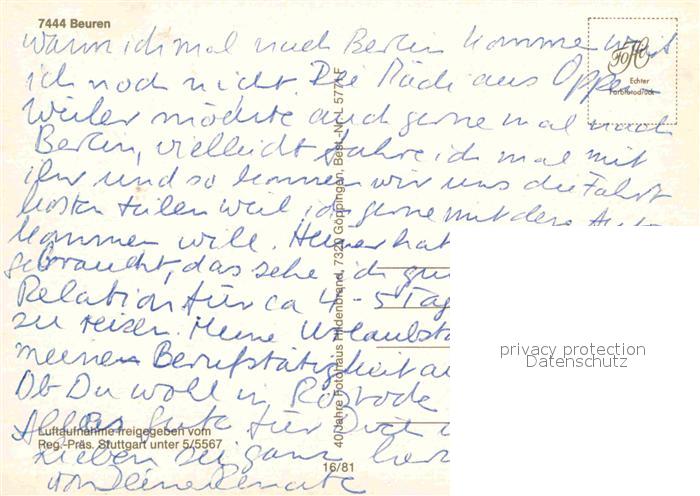 7444 Beuren
wann ich mal nach Berlin komme weiß
ich noch nicht. Die Mädi aus Oppen
weiler möchte auch gerne mal nach
Berlin, vielleicht fahre ich mal mit
ihr und so können wir uns die Fahrt
kosten teilen weil ich gerne mit dem Auto
kommen will. Heuer hat
gebraucht, das sehe ich
Relation für ca 4-5 Tag
zu reisen. Meine Urlaubsta
meinen Berufstätigkeit
Ob Du wohl in
Alles Gute für Dich
Lieben sei ganz herz
von Deine Renate
FoHi
Echter
Farbfotodruck
40 Jahre Fotohaus Hildenbrand, 7320 Göppingen, Best.-Nr. L 5774 F
Luftaufnahme freigegeben vom
Reg.-Präs. Stuttgart unter 5/5567
16/81
privacy protection
Datenschutz